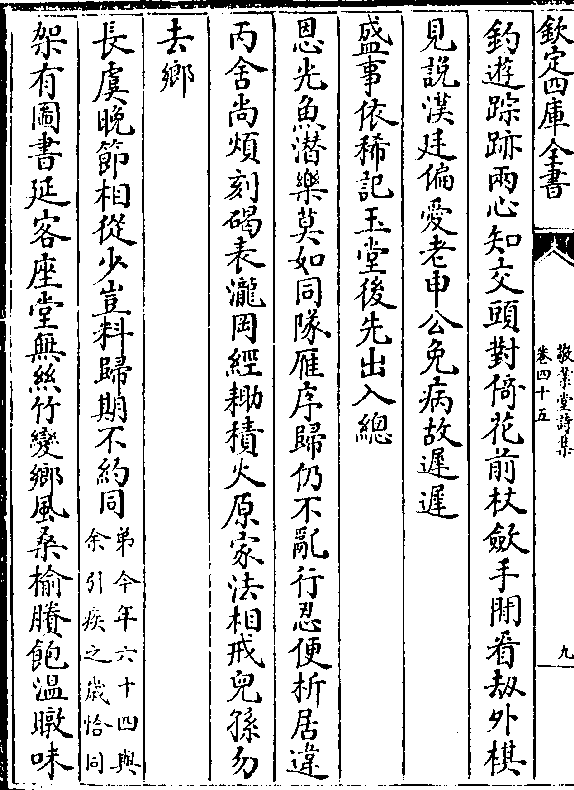 欽定四庫全書
敬業堂詩集
卷四十五
九
釣遊踪跡兩心知交頭對倚花前杖斂手閒看刼外棋
見説漢廷偏愛老申公免病故遲遲
盛事依稀記玉堂後先出入總
恩光魚潛樂莫如同隊雁序歸仍不亂行忍便析居違
丙舍尚煩刻碣表瀧岡經耡積火原家法相戒兒孫勿
去鄉
長虞晚節相從少豈料歸期不約同
弟今年六十四與
余引疾之歲恰同
架有圖書延客座堂無絲竹變鄉風桑榆賸飽温暾味